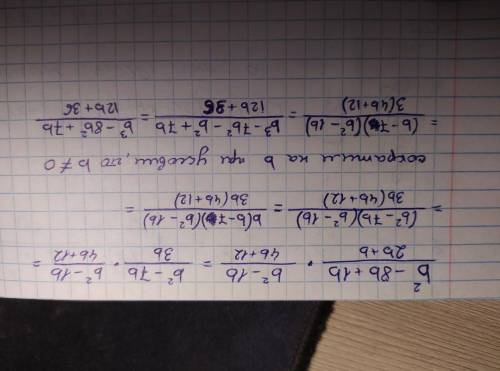 (b² - 8b + 1b)/(2b + b) · (b² - 1b)/(4b + 12) = (b² - 7b)/(3b) · (b² - 1b)/(4b + 12) =
= ((b² - 7b)(b² - 1b))/(3b(4b + 12)) = (b(b - 7)(b² - 1b))/(3b(4b + 12)) =
сократим на b при условии, что b ≠ 0
= ((b - 7)(b² - 1b))/(3(4b + 12)) = (b³ - 7b² - b² + 7b)/(12b + 36) = (b³ - 8b² + 7b)/(12b + 36)